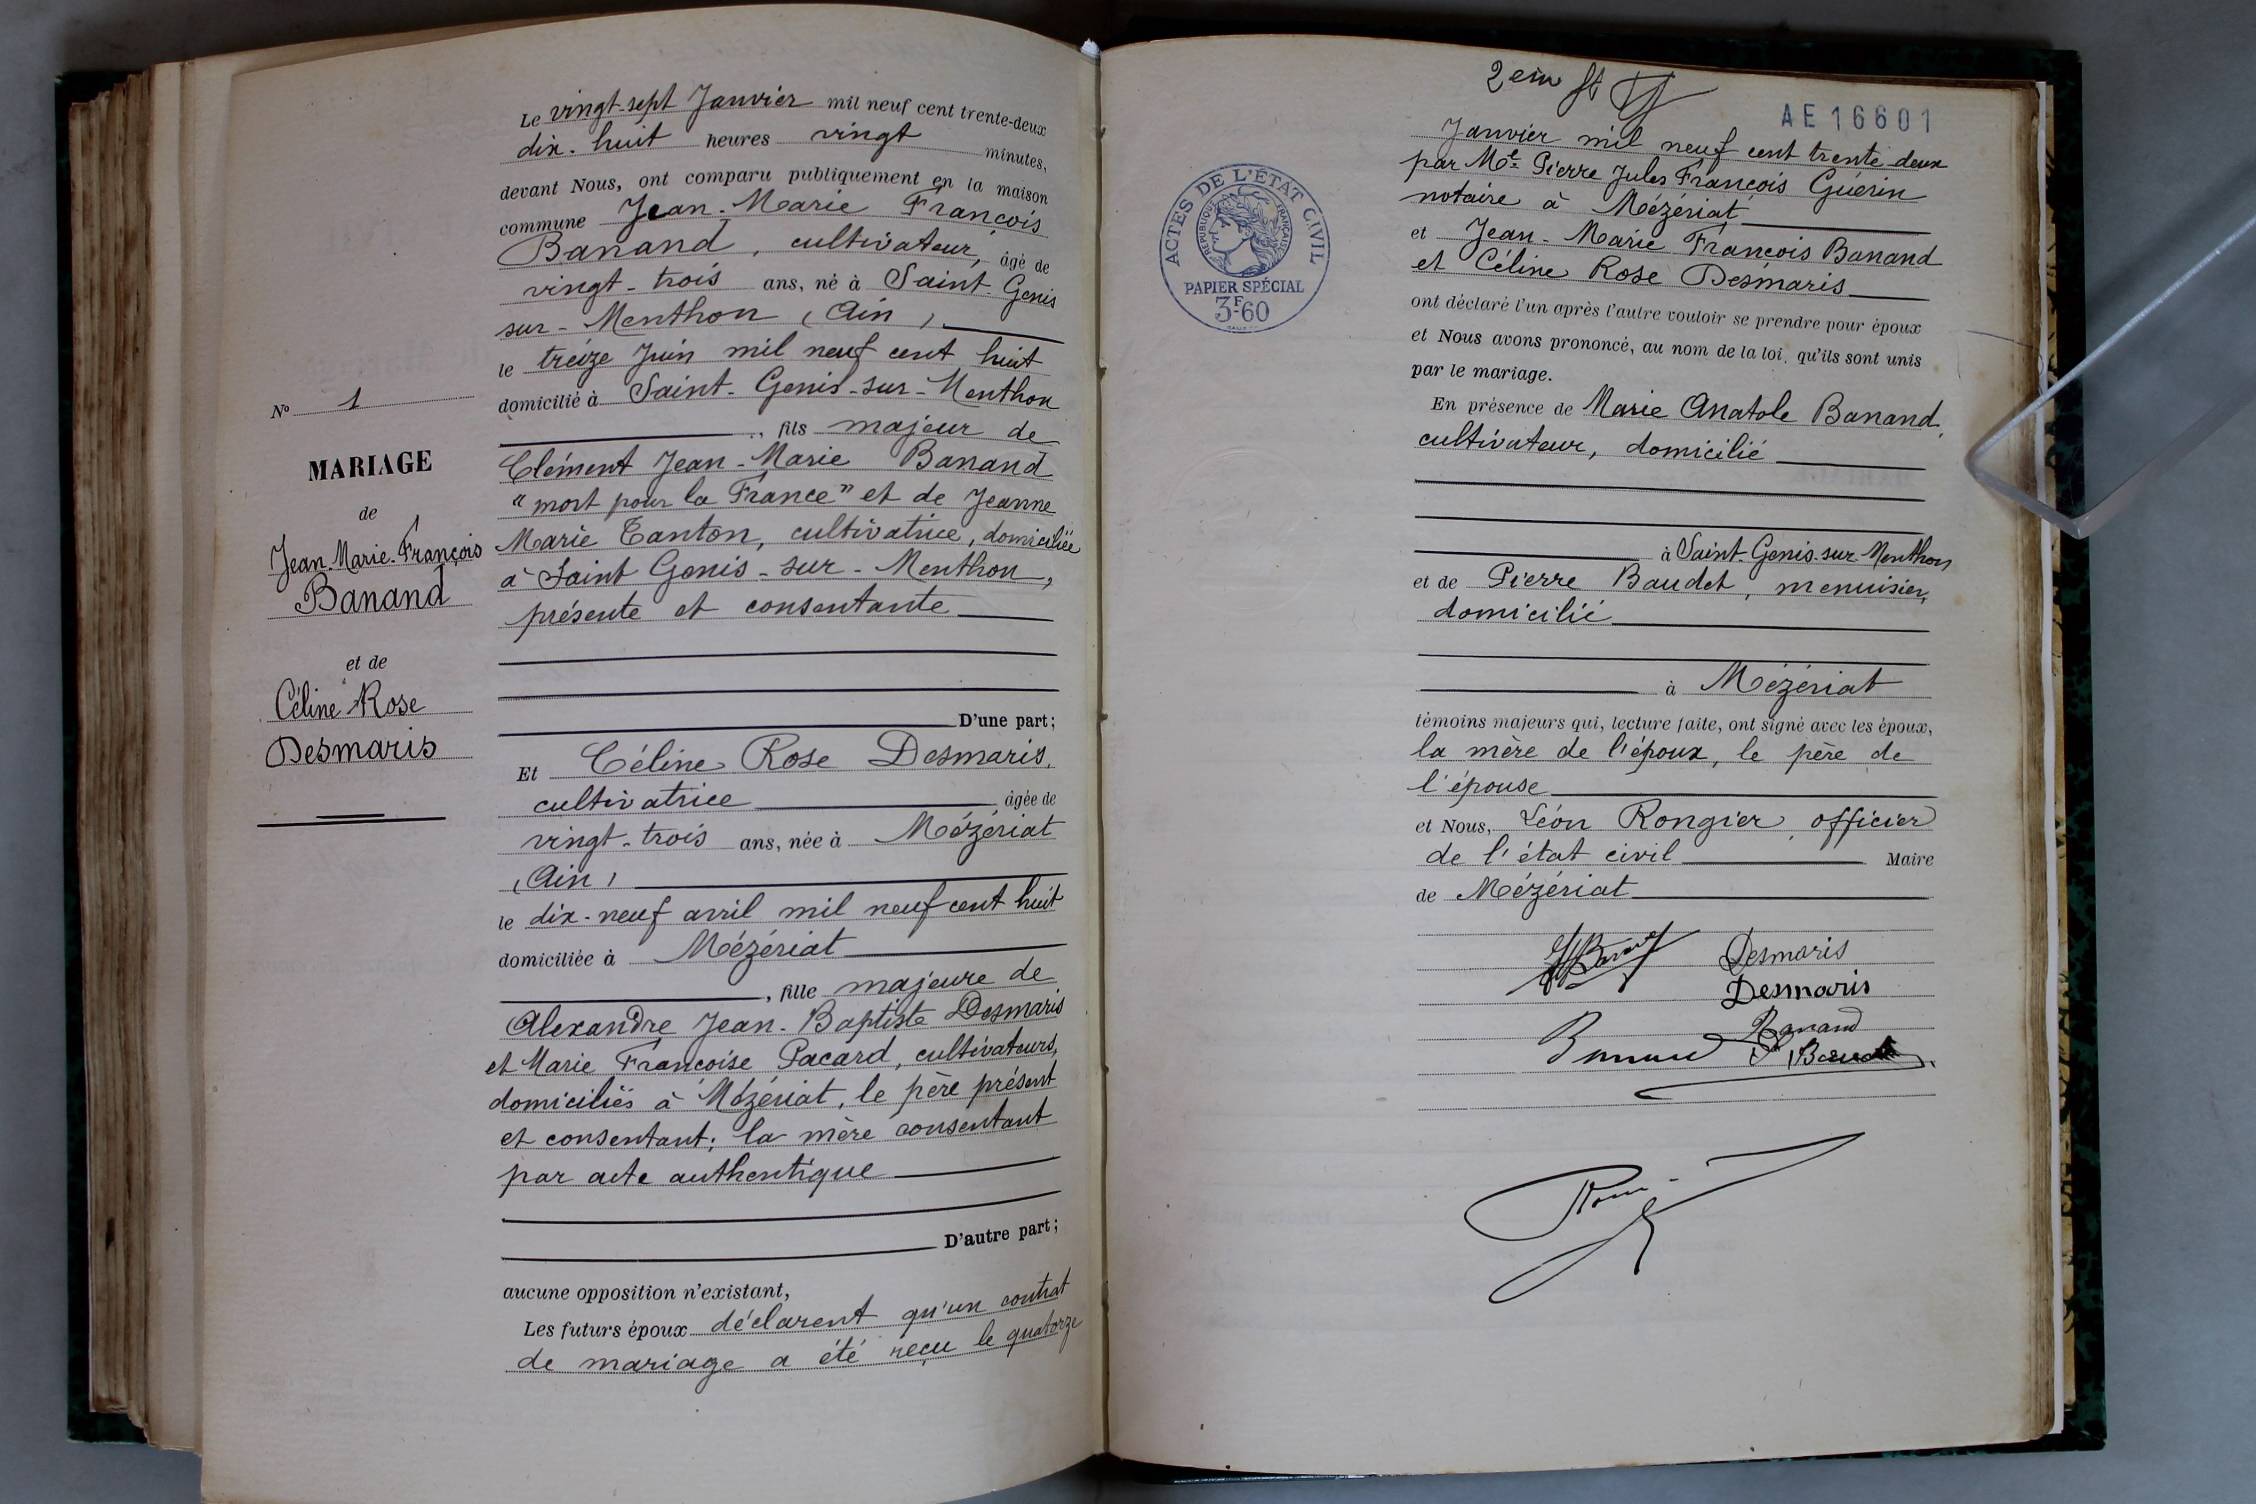 Nº 1
MARIAGE
de
Jean-Marie-François
Banand
et de
Céline Rose
Desmaris
Le vingt-sept Janvier mil neuf cent trente-deux
dix-huit heures vingt minutes,
devant Nous, ont comparu publiquement en la maison
commune Jean-Marie François
Banand, cultivateur, âgé de
vingt-trois ans, né à Saint-Genis
sur-Menthon (Ain)
le treize Juin mil neuf cent huit
domicilié à Saint-Genis-sur-Menthon
, fils majeur de
Clément Jean-Marie Banand
"mort pour la France" et de Jeanne
Marie Tanton, cultivatrice, domiciliée
à Saint Genis-sur-Menthon,
présente et consentante
D'une part;
Et Céline Rose Desmaris,
cultivatrice âgée de
vingt-trois ans, née à Mézériat
(Ain)
le dix-neuf avril mil neuf cent huit
domiciliée à Mézériat
, fille majeure de
Alexandre Jean-Baptiste Desmaris
et Marie Françoise Pacard, cultivateurs,
domiciliés à Mézériat, le père présent
et consentant; la mère consentant
par acte authentique
D'autre part;
aucune opposition n'existant,
Les futurs époux déclarent qu'un contrat
de mariage a été reçu le quatorze
ACTES DE L'ÉTAT CIVIL
RÉPUBLIQUE FRANÇAISE
PAPIER SPÉCIAL
3F-60
AE 16601
Janvier mil neuf cent trente deux
par Me Pierre Jules François Guérin
notaire à Mézériat
et Jean-Marie François Banand
et Céline Rose Desmaris
ont déclaré l'un après l'autre vouloir se prendre pour époux
et Nous avons prononcé, au nom de la loi, qu'ils sont unis
par le mariage.
En présence de Marie Anatole Banand,
cultivateur, domicilié
à Saint-Genis-sur-Menthon
et de Pierre Baudet, menuisier,
domicilié
à Mézériat
témoins majeurs qui, lecture faite, ont signé avec les époux,
la mère de l'époux, le père de
l'épouse
et Nous, Léon Rongier officier
de l'état civil Maire
de Mézériat
Desmaris
Desmaris
Banand